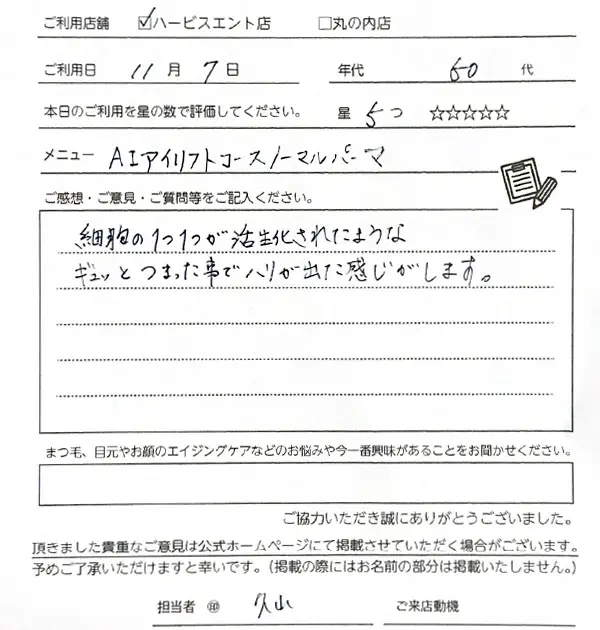 ご利用店舗 ☑ハービスエント店 □丸の内店
ご利用日 11月7日 年代 60代
本日のご利用を星の数で評価してください。 星 5つ ☆☆☆☆☆
メニュー AIアイリフトコースノーマルパーマ
ご感想・ご意見・ご質問等をご記入ください。
細胞の1つ1つが活生化されたような
ギュッとつまった事でハリが出た感じがします。
まつ毛、目元やお顔のエイジングケアなどのお悩みや今一番興味があることをお聞かせください。
ご協力いただき誠にありがとうございました。
頂きました貴重なご意見は公式ホームページにて掲載させていただく場合がございます。
予めご了承いただけますと幸いです。(掲載の際にはお名前の部分は掲載いたしません。)
担当者 ㊞ 久山 ご来店動機